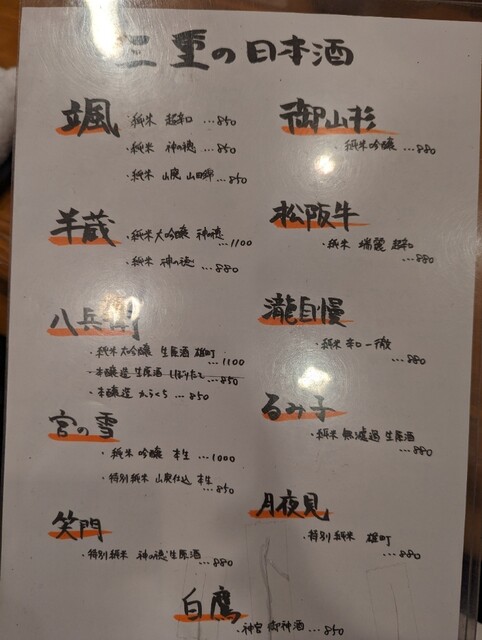 三重の日本酒
颯
・純米 超辛 …850
・純米 神の穂 …850
・純米 山廃 山田錦 …850
半蔵
・純米大吟醸 神の穂 …1100
・純米 神の穂 …880
八兵衛
・純米大吟醸 生原酒 雄町 …1100
・本醸造 生原酒 しぼりたて …850
・本醸造 からくち …850
宮の雪
・純米 吟醸 本生 …1000
・特別純米 山廃仕込 本生 …850
笑門
・特別純米 神の穂 生原酒 …880
御山杉
・純米吟醸 …880
松阪牛
・純米 瑞麗 超辛 …880
瀧自慢
・純米 辛口一徹 …880
るみ子
・純米 無濾過 生原酒 …880
月夜見
・特別純米 雄町 …880
白鷹
・神宮 御神酒 …850